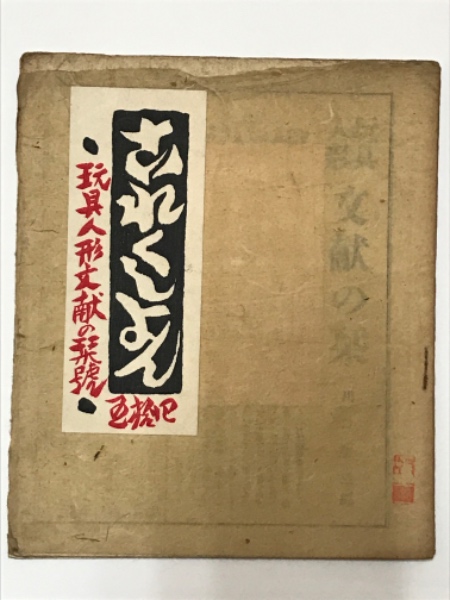 これくしよん
玩具人形文献の栞號
四拾五
玩具
人形
文献の栞